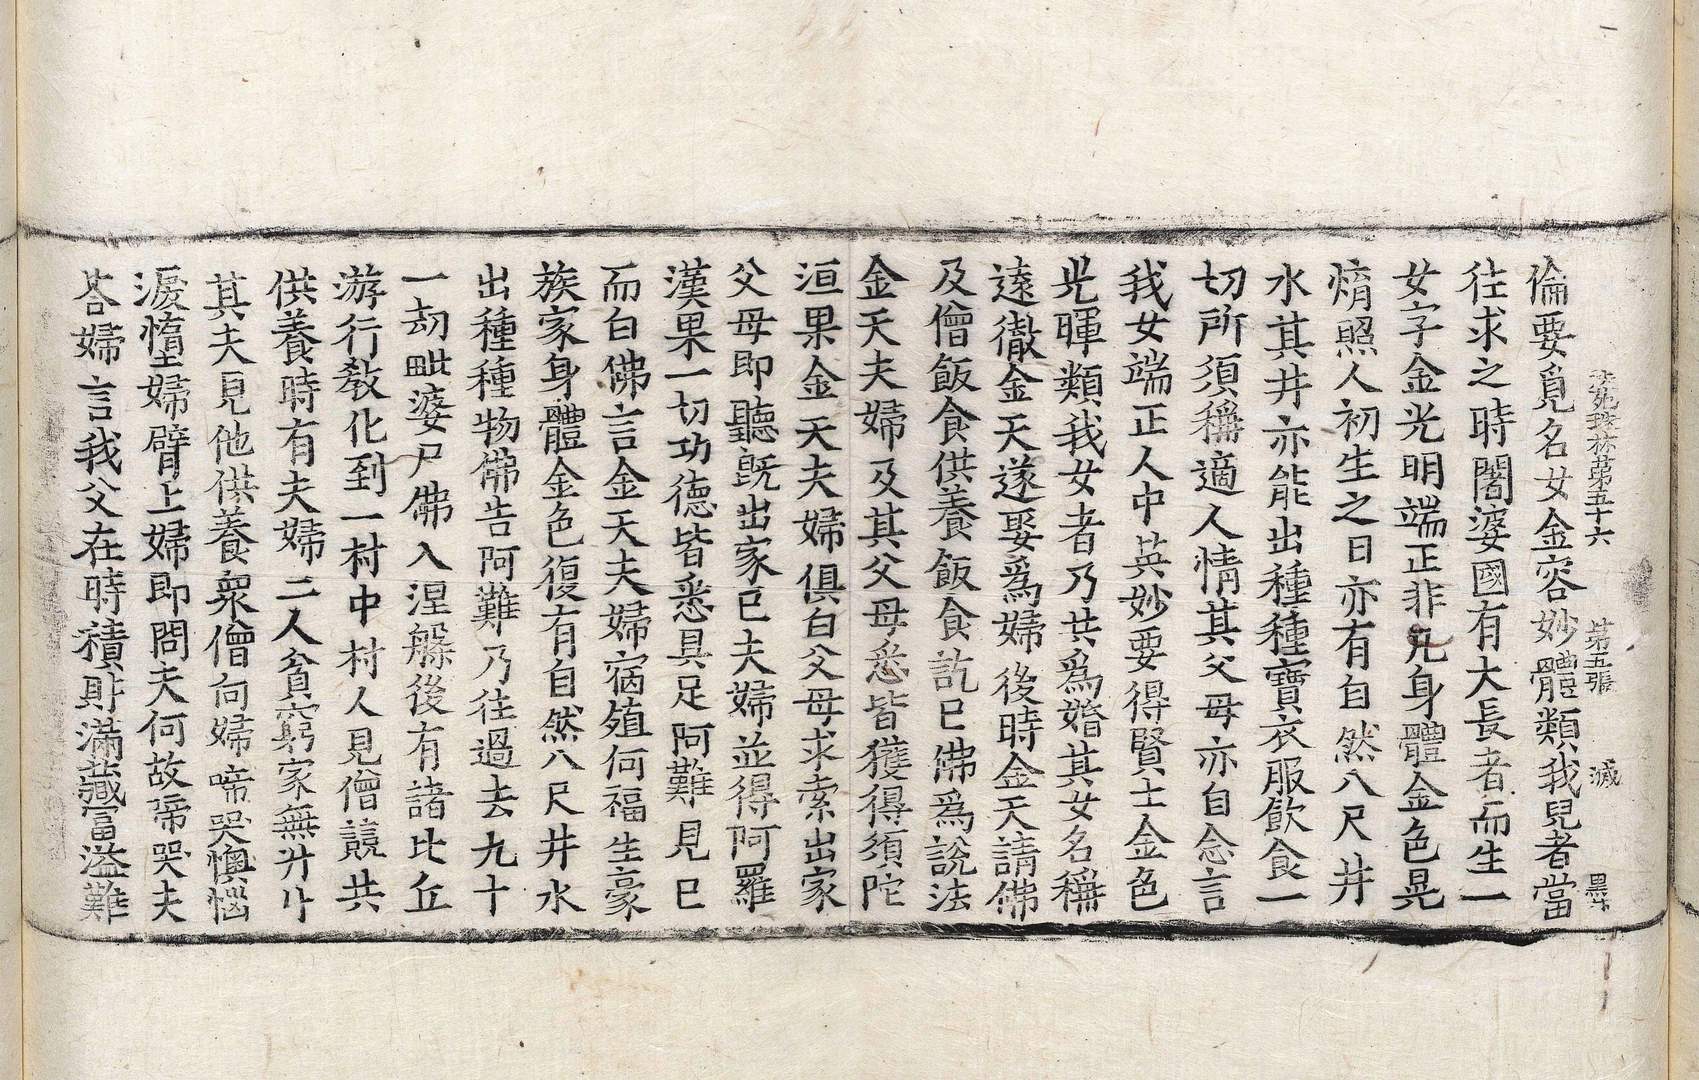 法苑珠林第五十六 第五張 滅
倫要覓名女金容妙體類我兒者當
往求之時闍婆國有大長者而生一
女字金光明端正非凡身體金色晃
煥照人初生之日亦有自然八尺井
水其井亦能出種種寶衣服飲食一
切所須稱適人情其父母亦自念言
我女端正人中英妙要得賢士金色
光暉類我女者乃共爲婚其女名稱
遠徹金天遂娶爲婦後時金天請佛
及僧飯食供養飯食訖已佛爲說法
金天夫婦及其父母悉皆獲得須陀
洹果金天夫婦俱白父母求索出家
父母即聽既出家已夫婦並得阿羅
漢果一切功德皆悉具足阿難見已
而白佛言金天夫婦宿殖何福生豪
族家身體金色復有自然八尺井水
出種種物佛告阿難乃往過去九十
一劫毗婆尸佛入涅槃後有諸比丘
游行教化到一村中村人見僧競共
供養時有夫婦二人貧窮家無升斗
其夫見他供養衆僧向婦啼哭懊惱
淚墮婦臂上婦即問夫何故啼哭夫
荅婦言我父在時積財滿藏富溢難